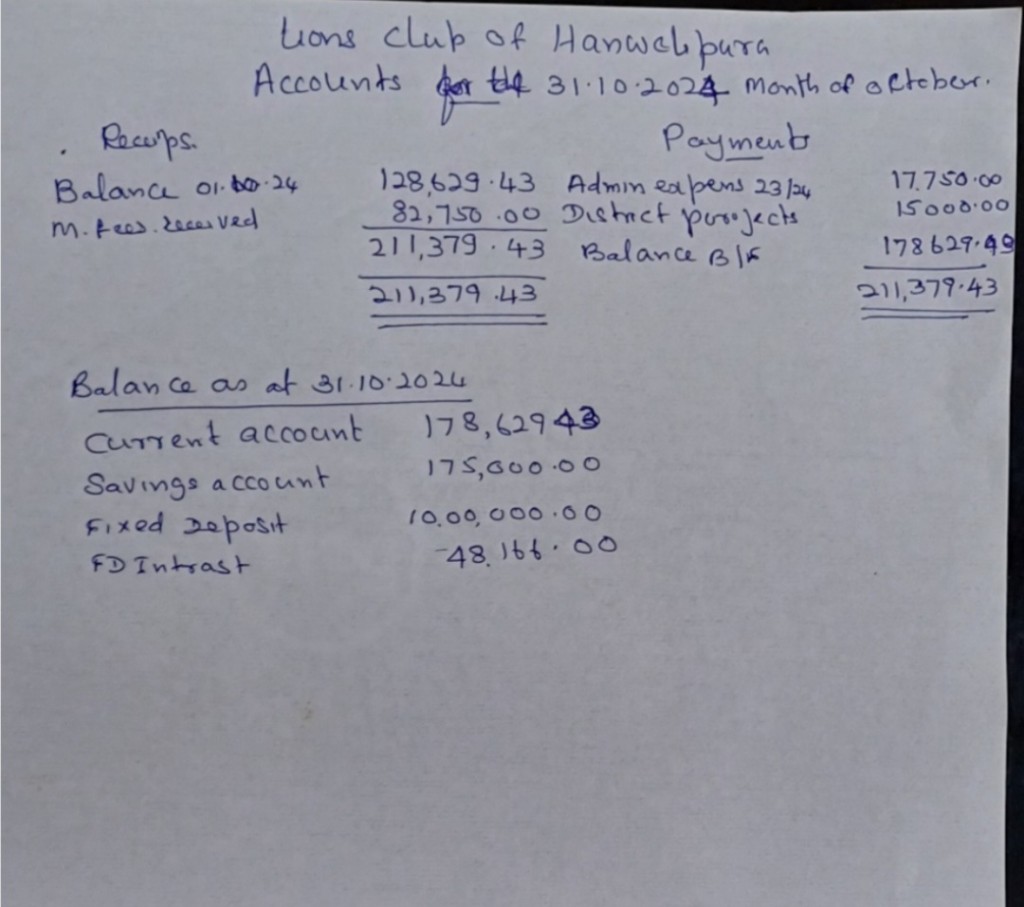 Lions Club of Hanwelipura
Accounts for the 31.10.2024 Month of October.
Receips. Payments
Balance 01.10.24 128,629.43 Admin expens 23/24 17.750.00
M. fees. received 82,750.00 District projects 15000.00
211,379.43 Balance B/F 178629.43
211,379.43 211,379.43
Balance as at 31.10.2024
Current account 178,629 43
Savings account 175,000.00
Fixed Deposit 10,00,000.00
FD Intrast -48.166.00